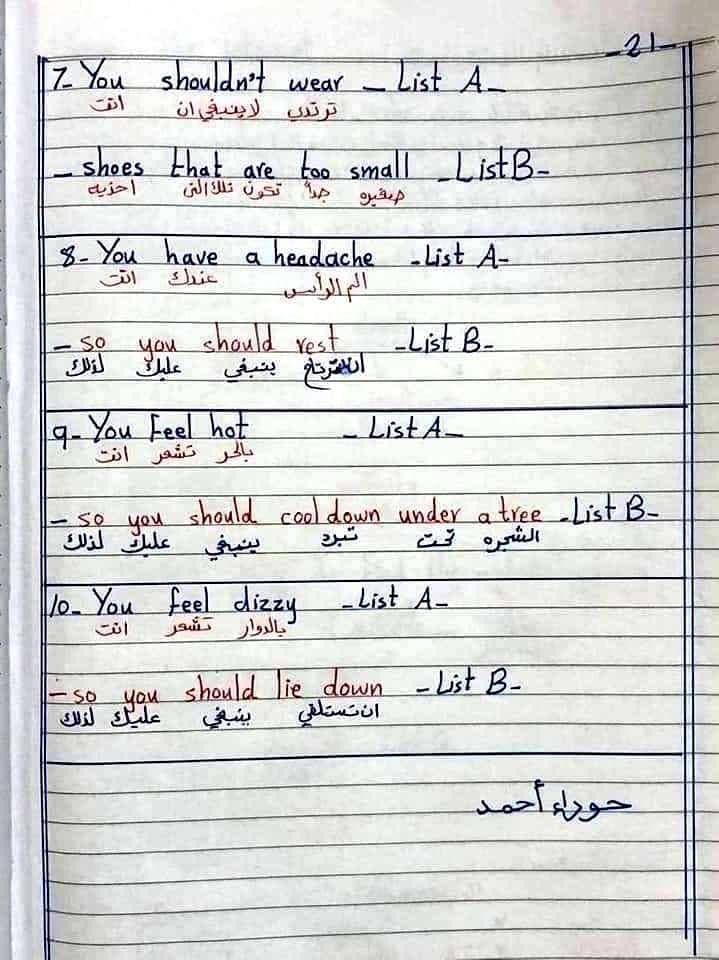 -21-
7- You shouldn't wear - List A-
انت لاينبغي ان ترتدي
- shoes that are too small - List B-
احذيه تلك التي تكون جداً صغيره
8- You have a headache - List A-
انت عندك الم الرأس
- so you should rest - List B-
لذلك عليك ينبغي ان ترتاح
9- You feel hot - List A-
انت تشعر بالحر
- so you should cool down under a tree - List B-
لذلك عليك ينبغي تبرد تحت الشجره
10- You feel dizzy - List A-
انت تشعر بالدوار
- so you should lie down - List B-
لذلك عليك ينبغي ان تستلقي
حوراء أحمد